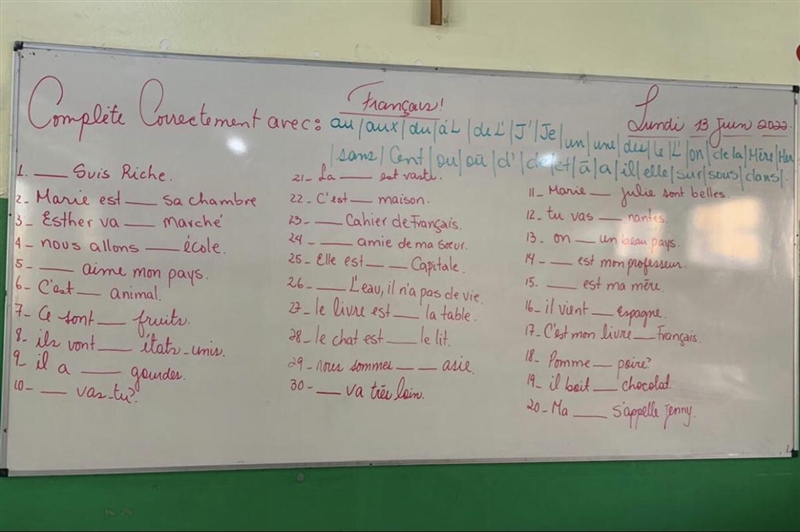 Français!
Complète Correctement avec:
au/aux/du/à L/de L'/J'/Je/un/une/des/le/L'/on/de la/Mère/Mer
/sans/Cent/ou/où/d'/de/et/à/a/il/elle/sur/sous/dans/
Lundi 13 Juin 2022.
1. ___ Suis Riche.
2- Marie est ___ sa chambre
3- Esther va ___ marché
4- nous allons ___ école.
5- ___ aime mon pays.
6- C'est ___ animal.
7- Ce sont ___ fruits.
8- ils vont ___ états-unis.
9- il a ___ gourdes.
10- ___ vas-tu?
21- La ___ est vaste.
22- C'est ___ maison.
23- ___ Cahier de Français.
24- ___ amie de ma soeur.
25- Elle est ___ ___ Capitale.
26- ___ L'eau, il n'a pas de vie.
27- le livre est ___ la table.
28- le chat est ___ le lit.
29- nous sommes ___ ___ asie.
30- ___ va très loin.
11- Marie ___ julie sont belles.
12- tu vas ___ nantes.
13- on ___ un beau pays.
14- ___ est mon professeur.
15- ___ est ma mère.
16- il vient ___ Espagne.
17- C'est mon livre ___ Français.
18- Pomme ___ poire?
19- il boit ___ chocolat.
20- Ma ___ s'appelle Jenny.